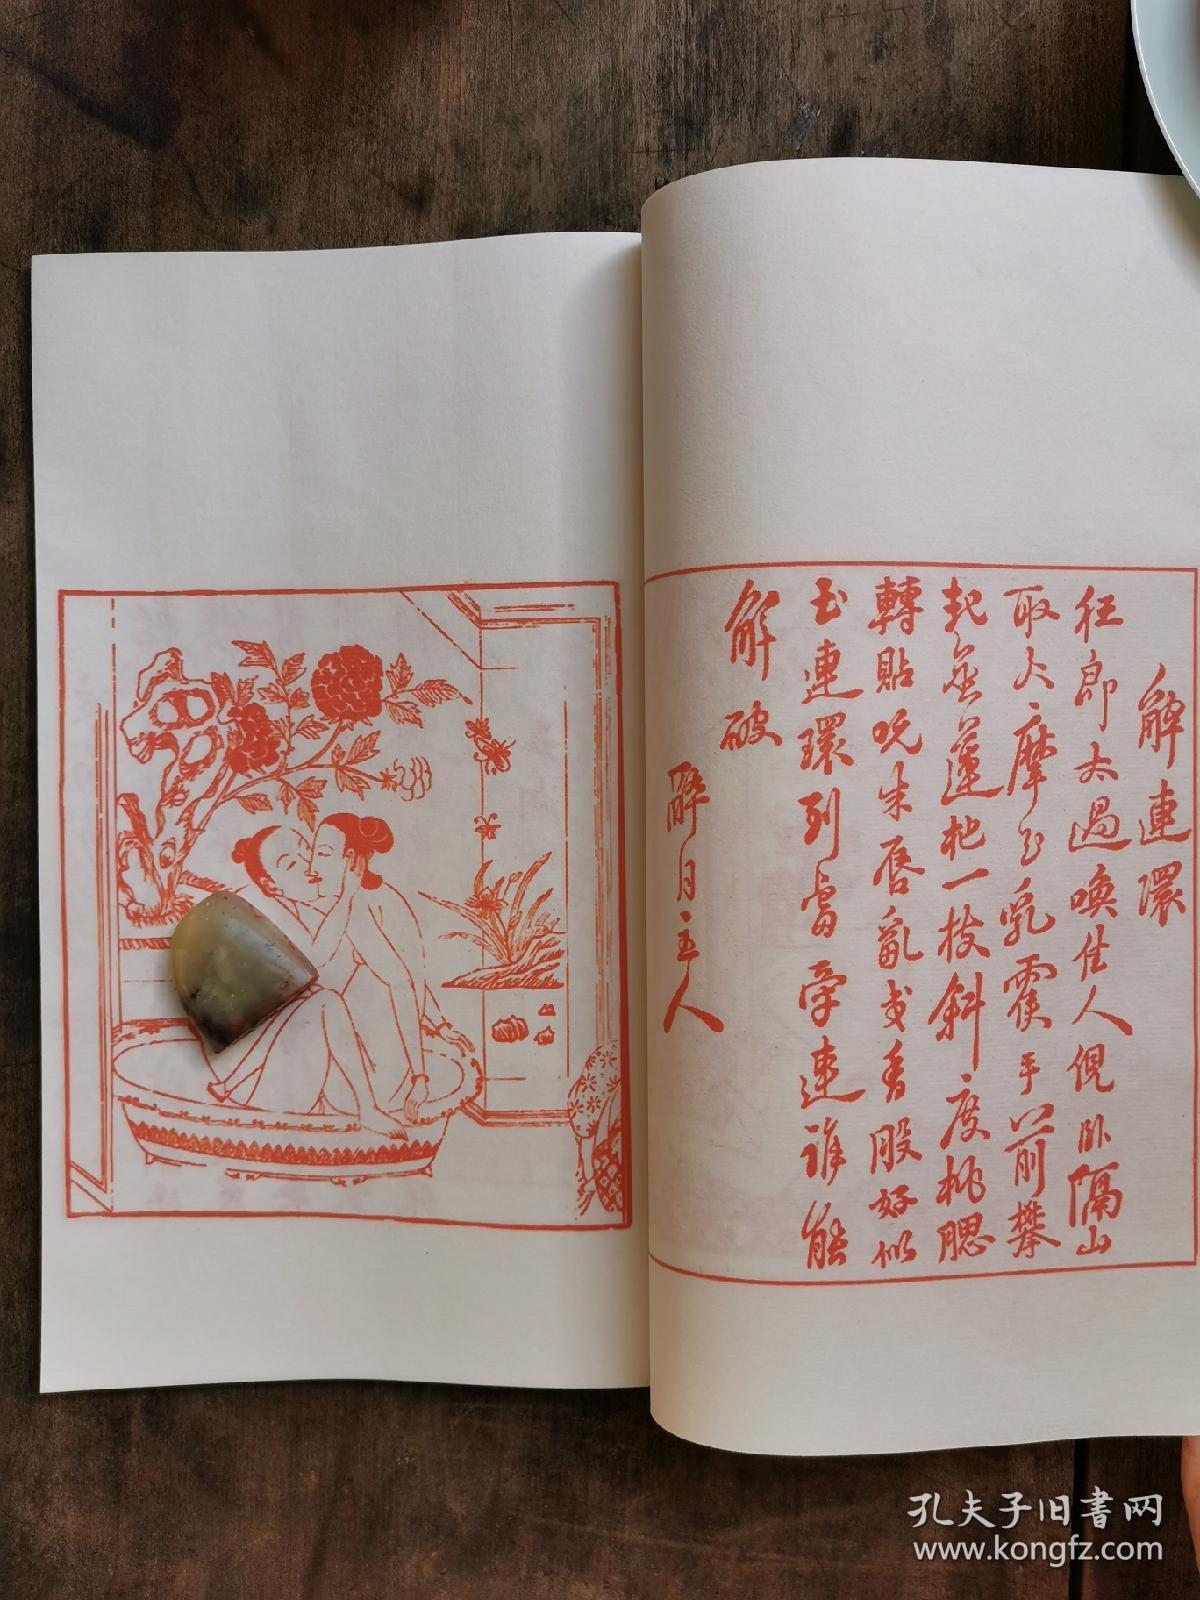 解連環
狂郎太過喚佳人俔卧隔山
取火摩弄乳霞手以前攀
起金蓮把一枝斜度桃腮
轉貼吮朱唇亂或香股好似
玉連環到當牽連誰能
解破
醉月主人
孔夫子旧书网
www.kongfz.com